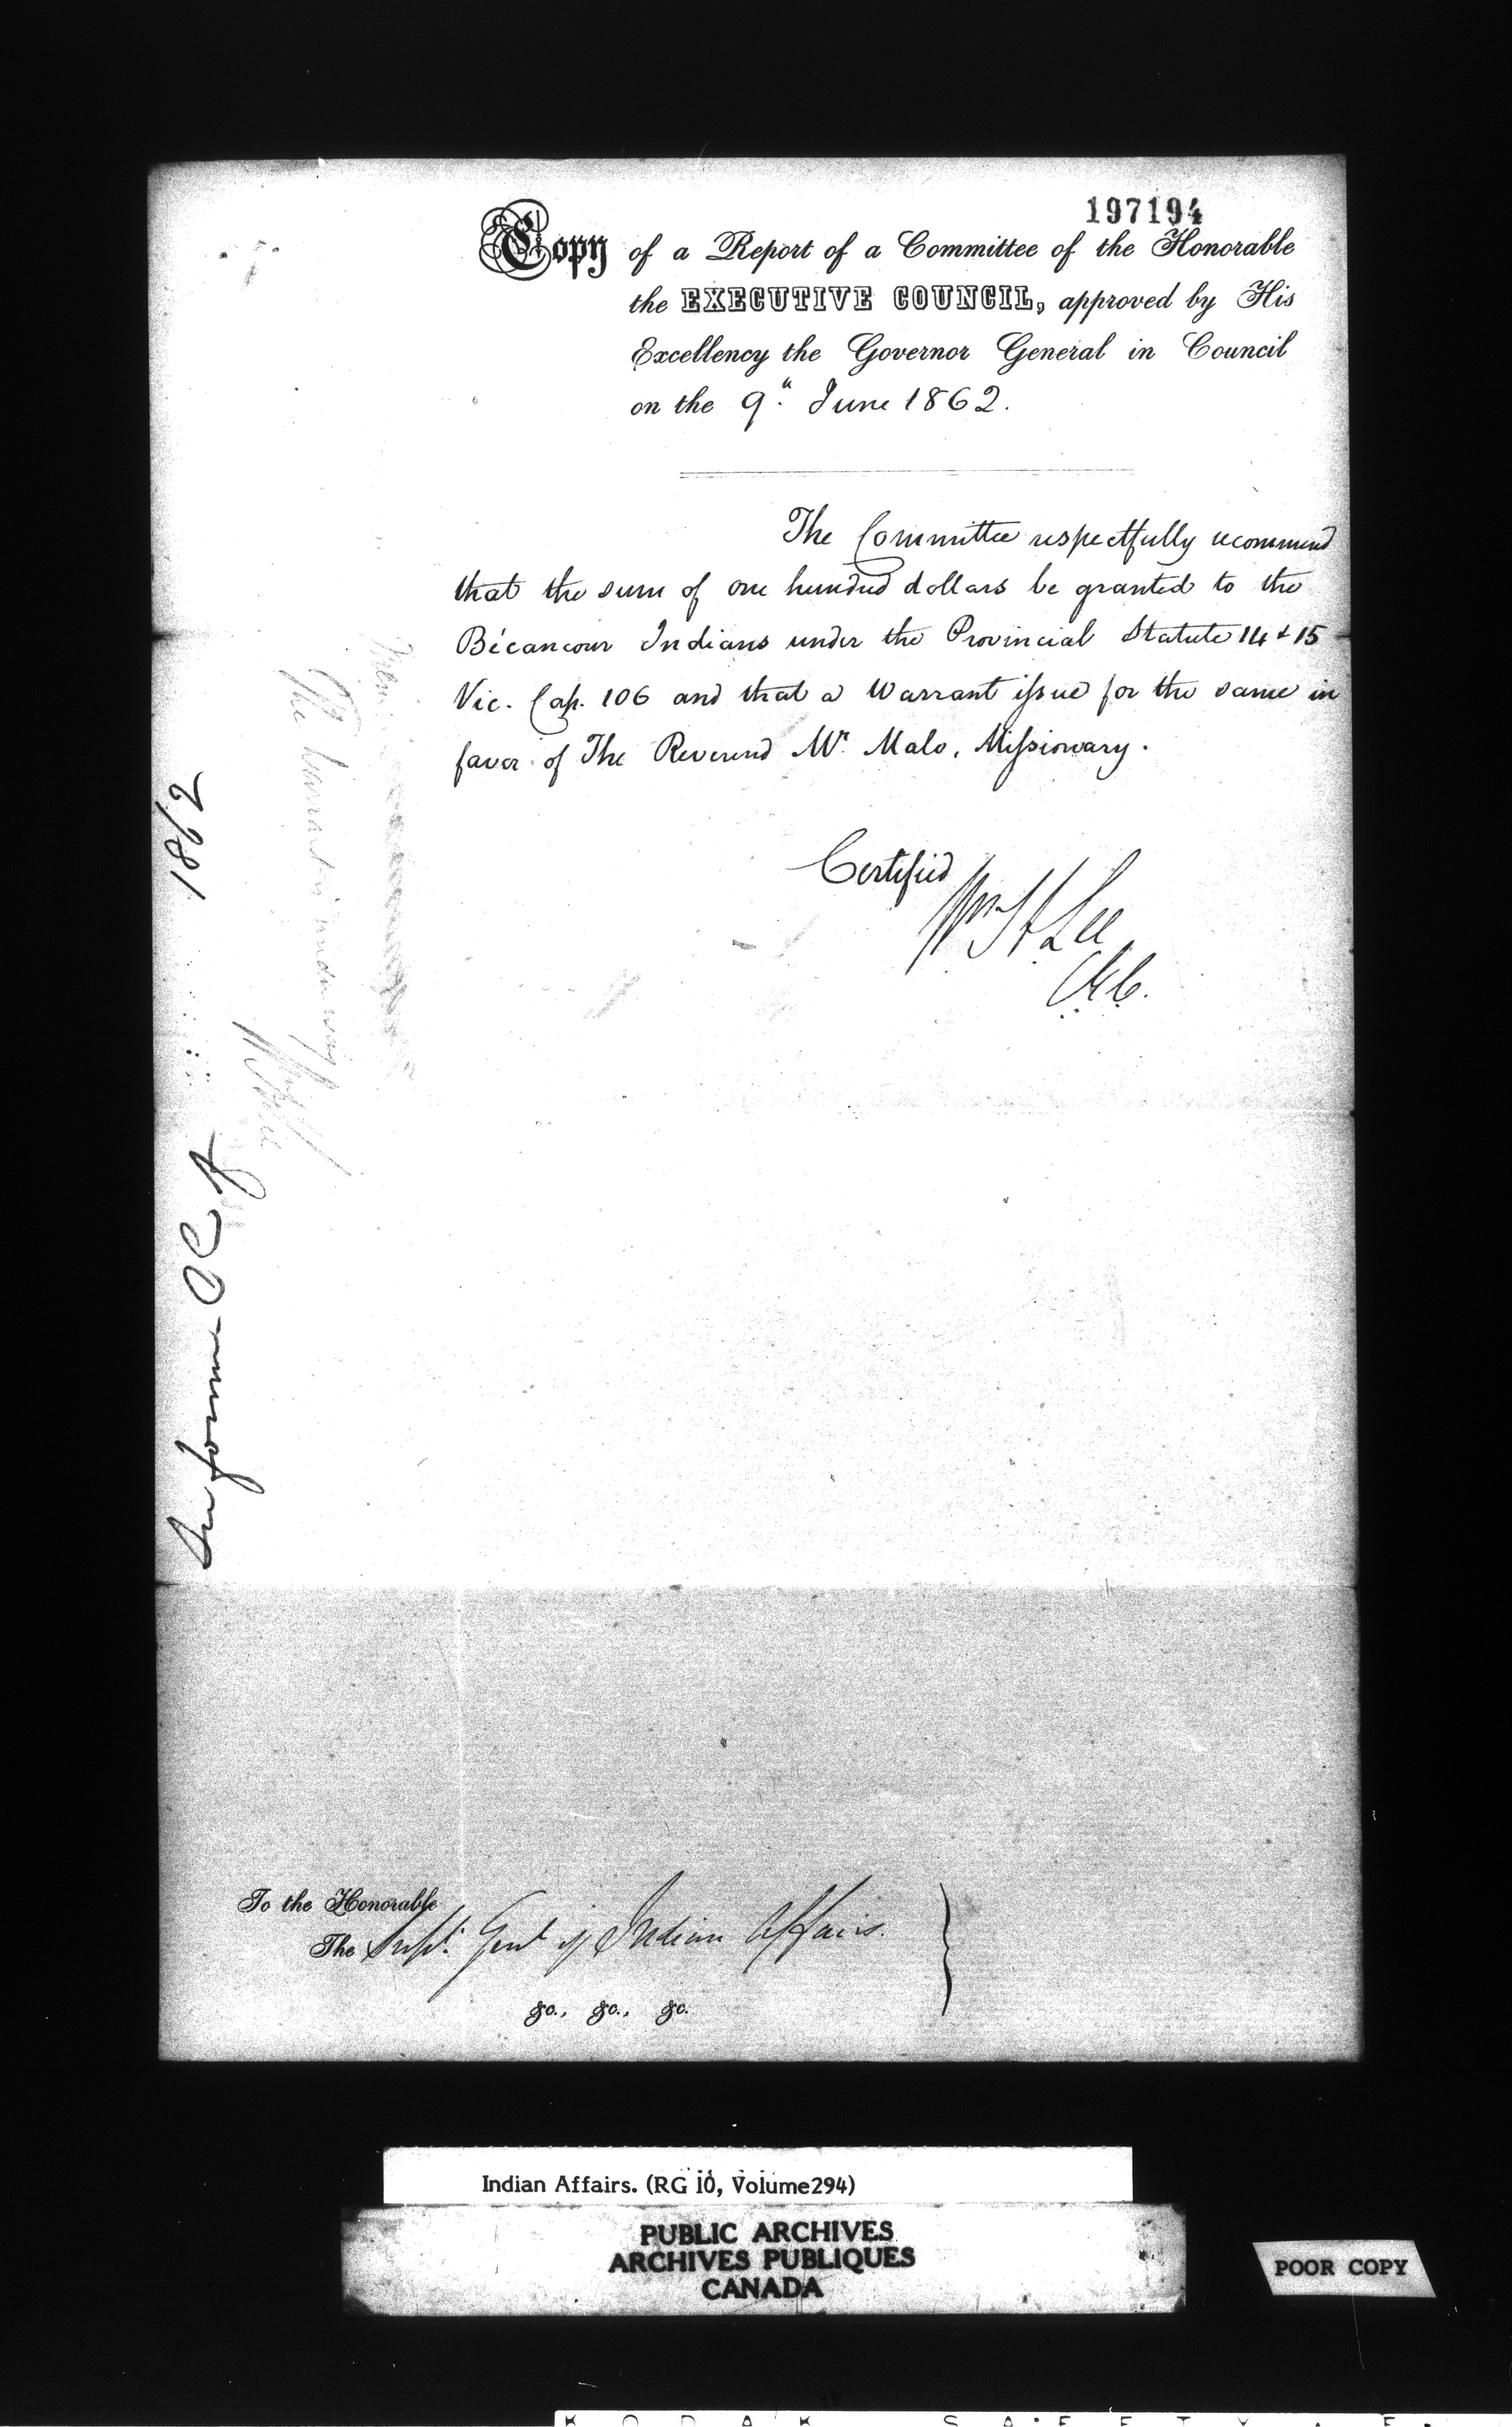 197194
Copy of a Report of a Committee of the Honorable
the EXECUTIVE COUNCIL, approved by His
Excellency the Governor General in Council
on the 9th June 1862.
The Committee respectfully recommend
that the sum of one hundred dollars be granted to the
Bécancour Indians under the Provincial Statute 14 & 15
Vic. Cap. 106 and that a Warrant issue for the same in
favor of The Reverend Mr. Malo, Missionary.
Certified
Wm H Lee
C.E.C.
1862
The warrant is under way
To the Honorable
The Supt. Genl of Indian Affairs.
&c., &c., &c.
Indian Affairs. (RG 10, Volume294)
PUBLIC ARCHIVES
ARCHIVES PUBLIQUES
CANADA
POOR COPY